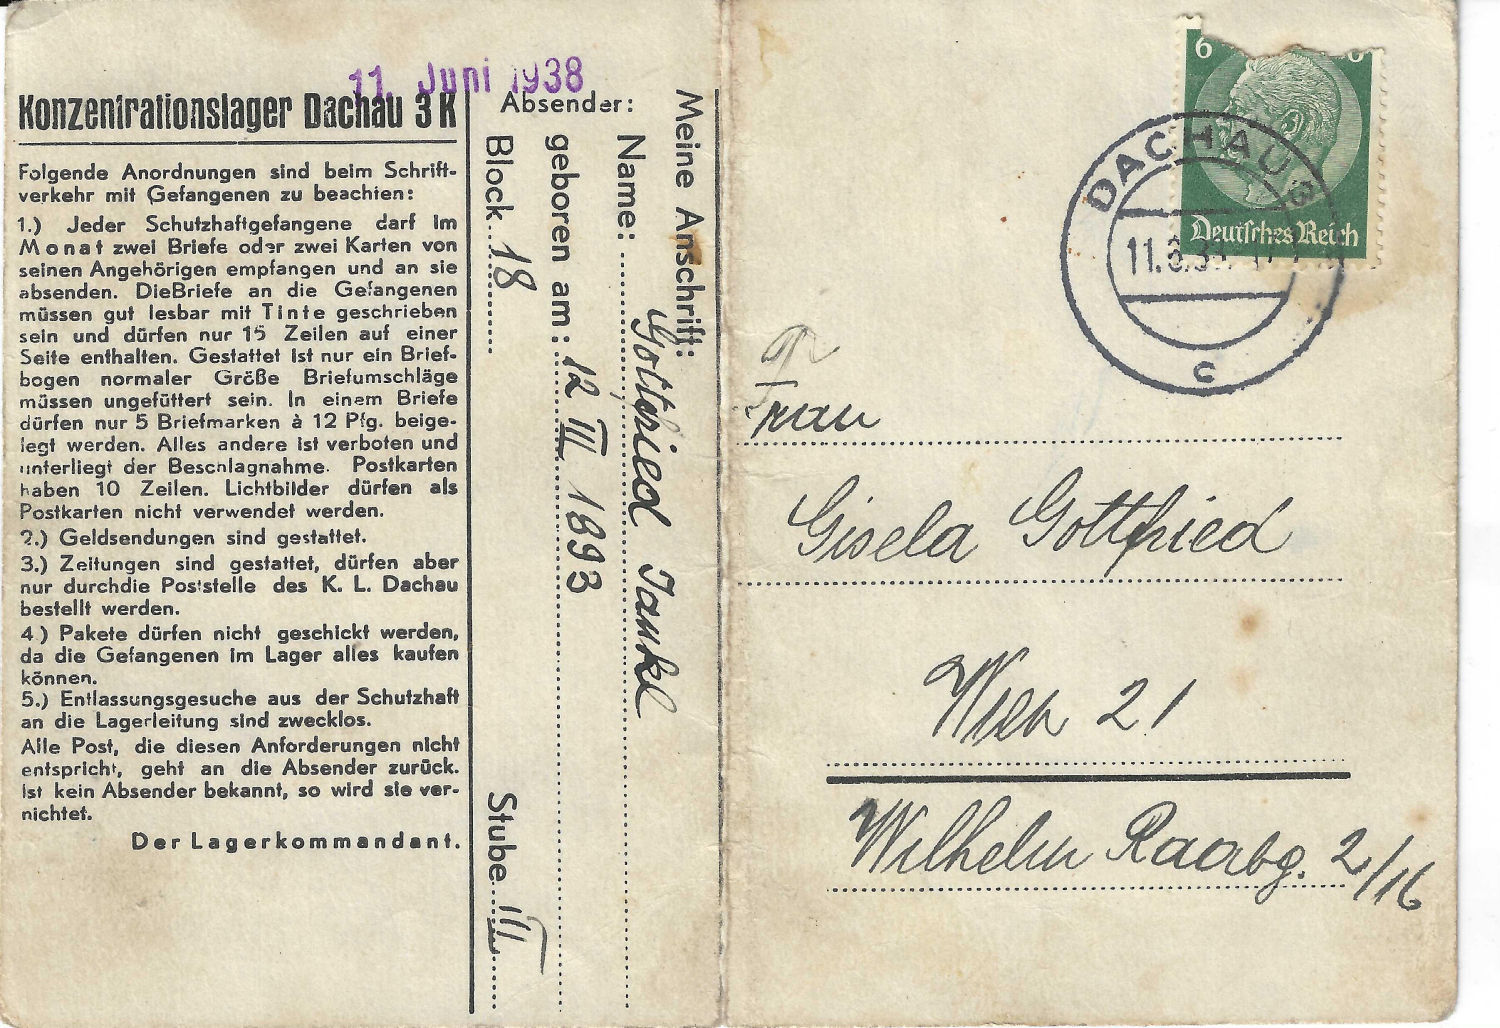 11. Juni 1938
Konzentrationslager Dachau 3 K
Folgende Anordnungen sind beim Schrift-
verkehr mit Gefangenen zu beachten:
1.) Jeder Schutzhaftgefangene darf im
Monat zwei Briefe oder zwei Karten von
seinen Angehörigen empfangen und an sie
absenden. DieBriefe an die Gefangenen
müssen gut lesbar mit Tinte geschrieben
sein und dürfen nur 15 Zeilen auf einer
Seite enthalten. Gestattet ist nur ein Brief-
bogen normaler Größe Briefumschläge
müssen ungefüttert sein. In einem Briefe
dürfen nur 5 Briefmarken à 12 Pfg. beige-
legt werden. Alles andere ist verboten und
unterliegt der Beschlagnahme. Postkarten
haben 10 Zeilen. Lichtbilder dürfen als
Postkarten nicht verwendet werden.
2.) Geldsendungen sind gestattet.
3.) Zeitungen sind gestattet, dürfen aber
nur durchdie Poststelle des K. L. Dachau
bestellt werden.
4) Pakete dürfen nicht geschickt werden,
da die Gefangenen im Lager alles kaufen
können.
5.) Entlassungsgesuche aus der Schutzhaft
an die Lagerleitung sind zwecklos.
Alle Post, die diesen Anforderungen nicht
entspricht, geht an die Absender zurück.
Ist kein Absender bekannt, so wird sie ver-
nichtet.
Der Lagerkommandant.
Absender:
Meine Anschrift:
Name: Gottfried Jankel
geboren am: 12 III 1893
Block 18 Stube III
6
Deutsches Reich
DACHAU 3
c
Frau
Gisela Gottfried
Wien 21
Wilhelm Raabg. 2/16